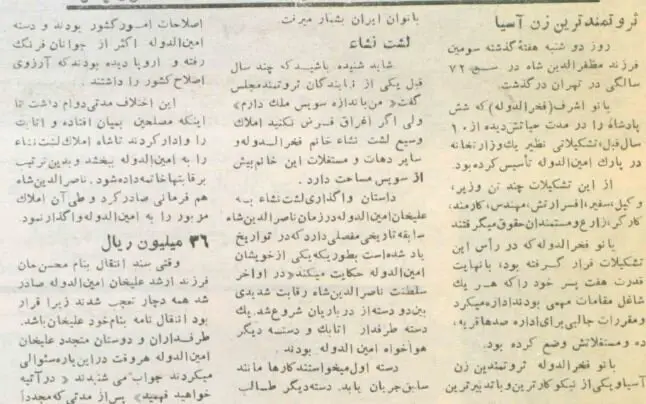 ثروتمندترین زن آسیا
روز دو شنبه هفتهٔ گذشته سومین
فرزند مظفرالدین شاه در سن ۷۲
سالگی در تهران درگذشت.
بانو اشرف (فخرالدوله) که شش
پادشاه را در مدت حیاتش دیده از ۱۰
سال قبل، تشکیلاتی نظیر یک وزارتخانه
در پارک امین الدوله تأسیس کرده بود.
از این تشکیلات چند تن وزیر،
وکیل، سفیر، افسر ارتش، مهندس، کارمند،
کارگر، زارع و مستمندان حقوق میگرفتند
بانو فخرالدوله که در رأس این
تشکیلات قرار گرفته بود، با نهایت
قدرت هفت پسر خود را که هر یک
شاغل مقامات مهمی بودند اداره میکرد
و مقررات جالبی برای اداره صدها قریه،
ده و مستغلاتش وضع کرده بود.
بانو فخرالدوله ثروتمندین زن
آسیا و یکی از نیکوکارترین و با تدبیرترین
بانوان ایران بشمار میرفت
لشت نشاء
شاید شنیده باشید که چند سال
قبل یکی از نمایندگان ثروتمند مجلس
گفت «من باندازه سویس ملک دارم»
ولی اگر اغراق فرض نکنید املاک
وسیع لشت نشاء خانم فخرالدوله و
سایر دهات و مستغلات این خانم بیش
از سویس مساحت دارد.
داستان واگذاری لشت نشاء به
علیخان امین الدوله در زمان ناصرالدین شاه
سابقه تاریخی مفصلی دارد که در تواریخ
یاد شده است بطوریکه یکی از خویشان
امین الدوله حکایت میکند «در اواخر
سلطنت ناصرالدین شاه رقابت شدیدی
بین دو دسته از درباریان شروع شد. یک
دسته طرفدار اتابک و دسته دیگر
هواخواه امین الدوله بودند.
دسته اول میخواستند کارها مانند
سابق جریان یابد. دسته دیگر طالب
اصلاحات امور کشور بودند و دسته
امین الدوله اکثر از جوانان فرنگ
رفته و اروپا دیده بودند که آرزوی
اصلاح کشور را داشتند.
این اختلاف مدتی دوام داشت تا
اینکه مصلحین بمیان افتاده و اتابک
را وادار کردند تا شاه املاک لشت نشاء
را به امین الدوله ببخشد و بدین ترتیب
برقابتها خاتمه داده شود. ناصرالدین شاه
هم فرمانی صادر کرد و طی آن املاک
مزبور را به امین الدوله واگذار نمود.
۳۶ میلیون ریال
وقتی سند انتقال بنام محسن خان
فرزند ارشد علیخان امین الدوله صادر
شد همه دچار تعجب شدند زیرا قرار
بود انتقال نامه بنام خود علیخان باشد.
طرفداران و دوستان متجدد علیخان
امین الدوله هر وقت در این باره سئوالی
میکردند جواب می شنیدند «در آتیه
خواهید فهمید» پس از مدتی که مجدداً